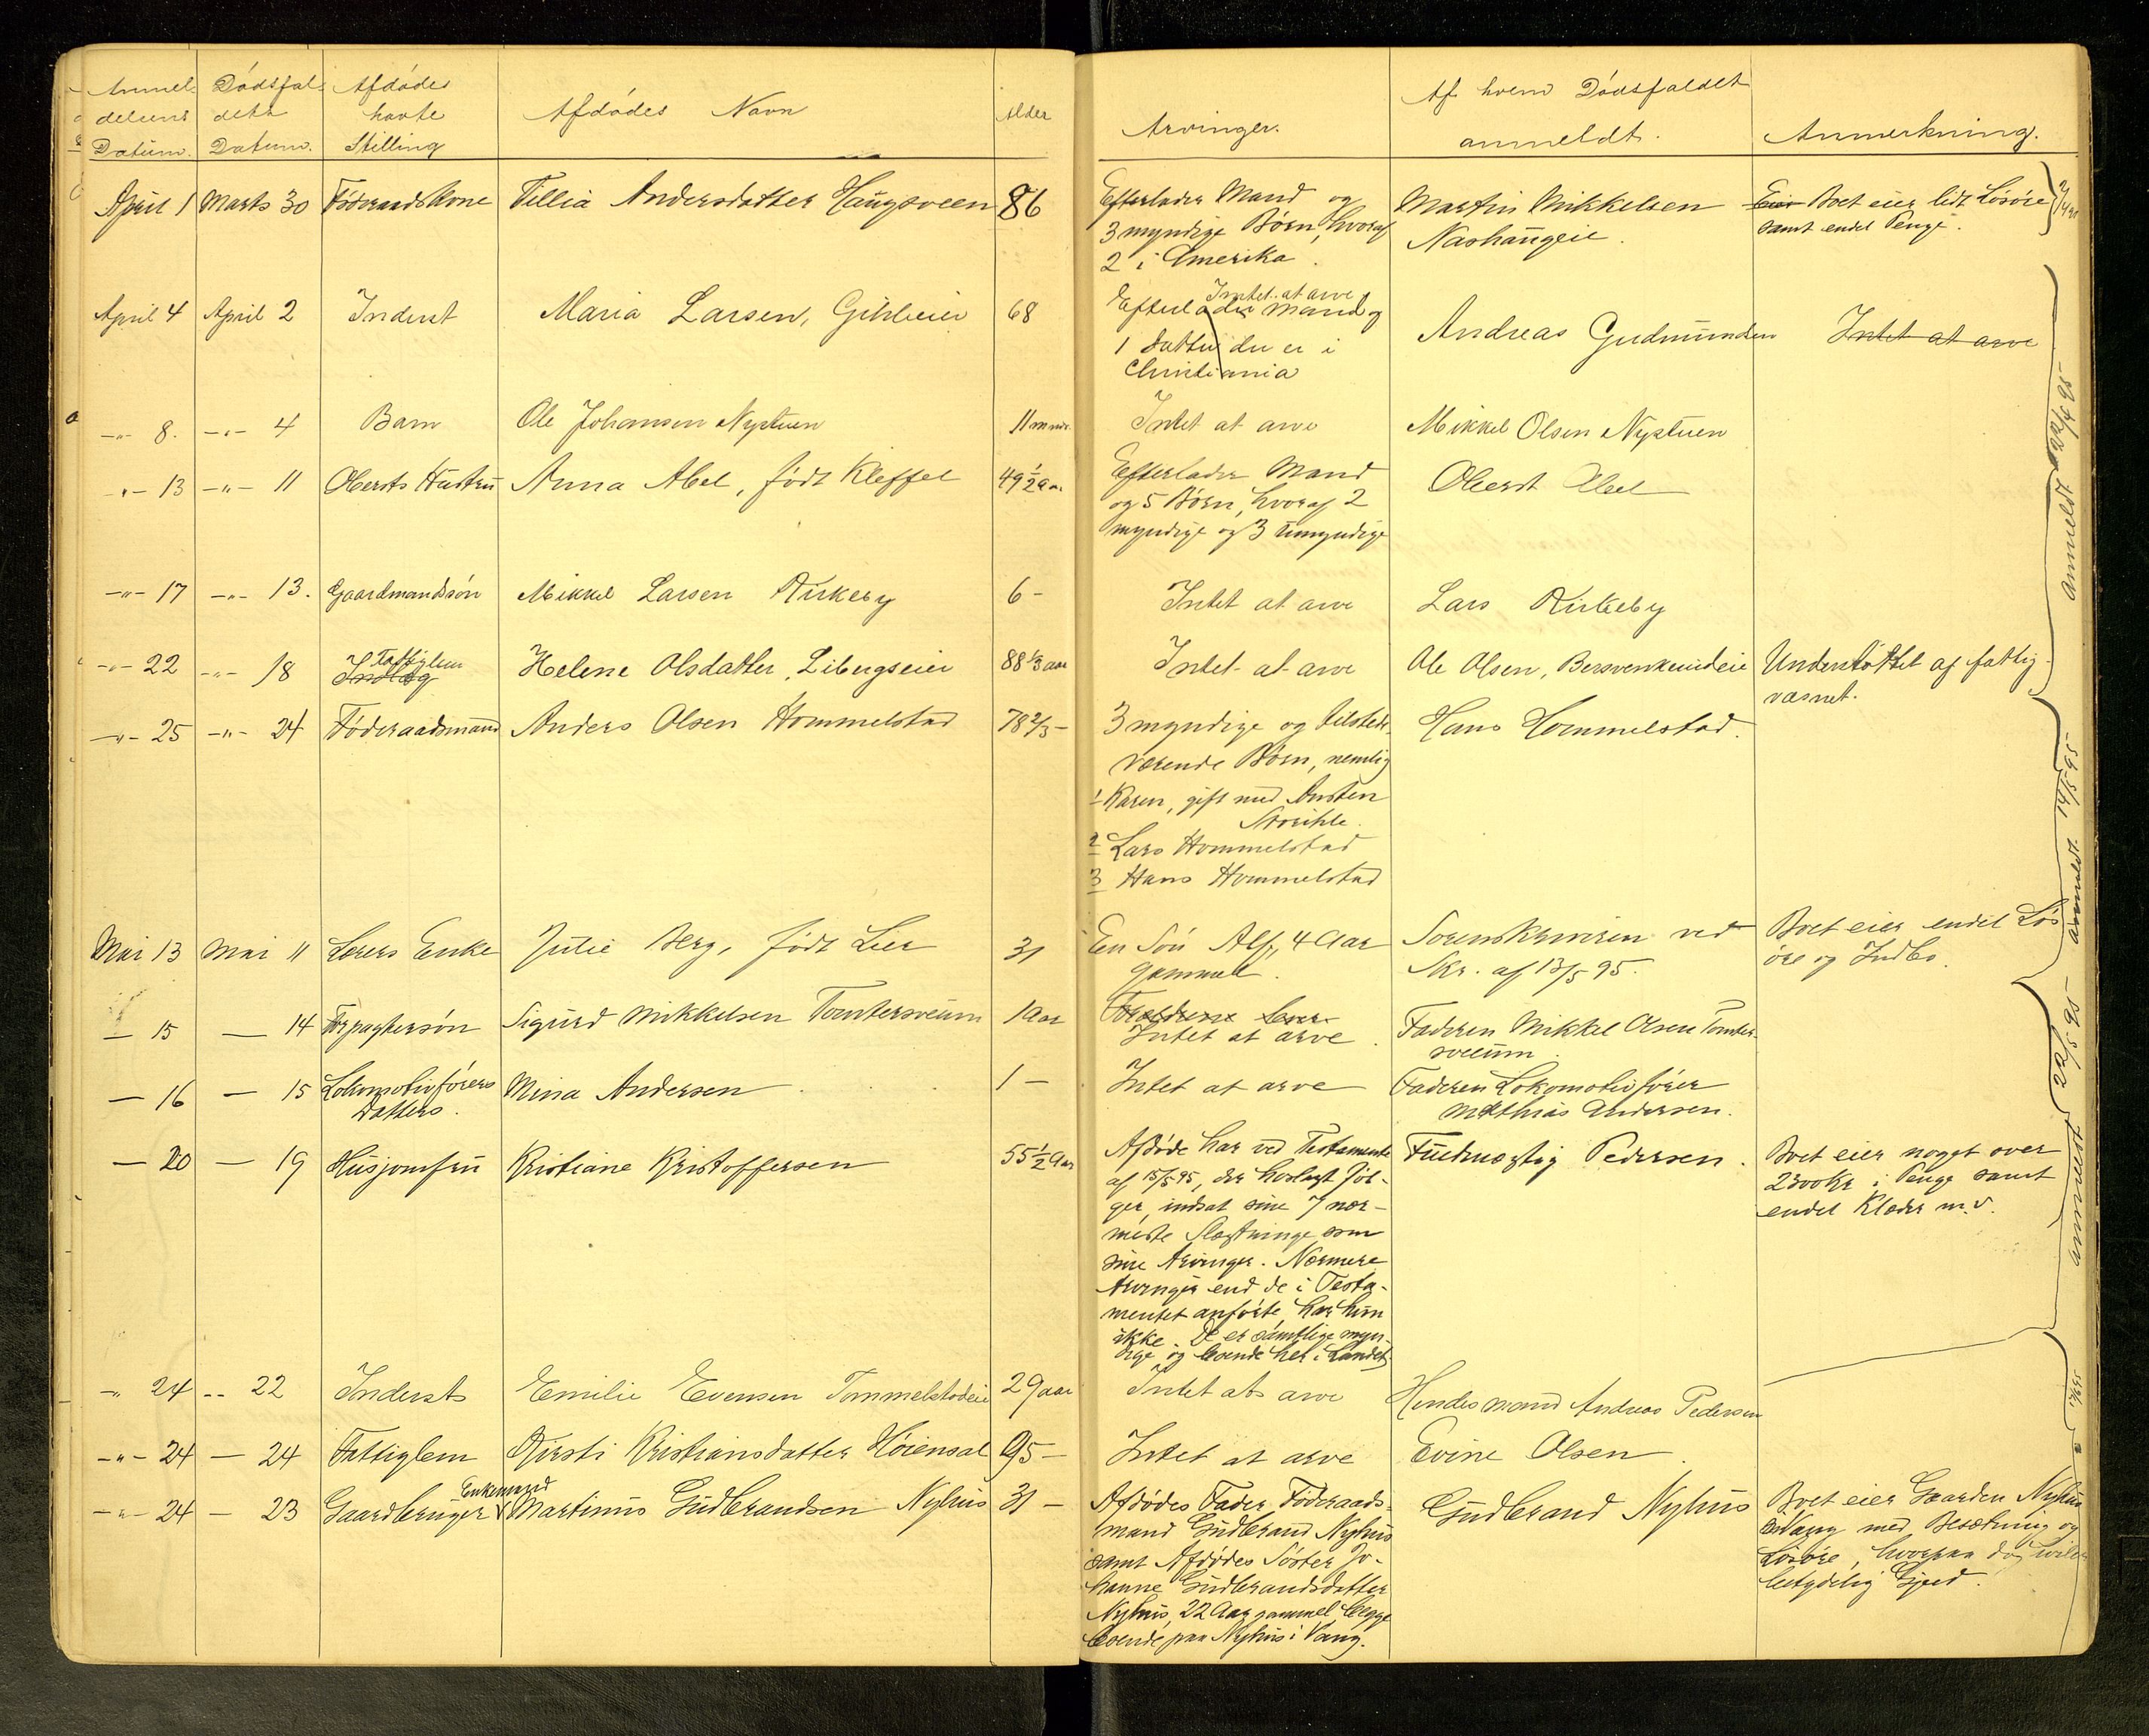 Anmel- Dødsfal- Afdødes
delsens dets havte Afdødes Navn Alder
Datum. Datum. Stilling
Arvinger. Af hvem Dødsfaldet
anmeldt. Anmerkning.
April 1 Marts 30 Føderaadskone Tillia Andersdatter Haugsveen 86
Efterlader Mand og
3 myndige Børn, hvoraf
2 i Amerika.
Martin Mikkelsen
Nashaugeie.
Eier Boet eier lidt Løsøre
samt endel Penge.
April 4 April 2 Inderst Maria Larsen, Gihleeie 68
Intet at arve
Efterlader Mand og
1 Datter der er i
Christiania
Andreas Gudmundsen
Intet at arve
-"- 8. -"- 4 Barn Ole Johansen Nystuen 11 mndr.
Intet at arve Mikkel Olsen Nystuen
-"- 13 -"- 11 Obersts Hustru Anna Abel, født Kleffel 49 1/2 aar
Efterlader Mand
og 5 Børn, hvoraf 2
myndige og 3 umyndige
Oberst Abel
-"- 17 -"- 13. Gaardmandssøn Mikkel Larsen Kirkeby 6 -
Intet at arve Lars Kirkeby
anmeldt 22/4 95
-"- 22 -"- 18 Fattiglem Helene Olsdatter, Libergseie 88 1/3 aar
Intet at arve Ole Olsen, Bersvenkeindeie Understøttet af fattig-
væsnet.
-"- 25 -"- 24 Føderaadsmand Anders Olsen Hommelstad 78 2/3 -
3 myndige og tilstede-
værende Børn, nemlig
1 Karen, gift med Austen
Storihle.
2 Lars Hommelstad
3 Hans Hommelstad
Hans Hommelstad.
anmeldt 14/5 95
Mai 13 Mai 11 Lærers Enke Julie Berg, født Lier 31
En Søn Alf, 4 Aar
gammel.
Sorenskriveren ved
Skr. af 13/5 95.
Boet eier endel Løs
øre og Indbo.
- 15 - 14 Forpagtersøn Sigurd Mikkelsen Tomtersveum 1 aar
Forældrene lever
Intet at arve.
Faderen Mikkel Olsen Tomter-
sveum.
- 16 - 15 Lokomotivførers
Datters.
Mina Andersen 1 -
Intet at arve Faderen Lokomotivfører
Mathias Andersen.
anmeldt 22/5 95
- 20 - 19 Husjomfru Kristiane Kristoffersen 55 1/2 Aar
Afdøde har ved Testamente
af 15/5 95, der hoslagt føl-
ger, indsat sine 7 nær-
meste Slægtninge som
sine Arvinger. Nærmere
Arvinger end de i Testa-
mentet anførte har hun
ikke. De er samtlige myn-
dige og boende her i Landet.
Fuldmægtig Pedersen.
Boet eier noget over
2300 Kr i Penge samt
endel Klæder m.v.
-" 24 -- 22 Inderst Emilie Evensen Tommelstadeie 29 aar
Intet at arve Hendes mand Andreas Pedersen
-"- 24 - 24 Fattiglem Kjersti Kristiansdatter Høiensal 95 -
Intet at arve Evine Olsen.
Enkemand
-"- 24 - 23 Gaardbruger Martinus Gudbrandsen Nyhus 31 -
Afdødes Fader Føderaads-
mand Gudbrand Nyhus
samt Afdødes Søster Jo-
hanne Gudbrandsdatter
Nyhus, 22 Aar gammel begge
boende paa Nyhus i Vang.
Gudbrand Nyhus
Boet eier Gaarden Nyhus
i Vang med Besætning og
Løsøre, hvorpaa dog hviler
betydelig Gjeld.